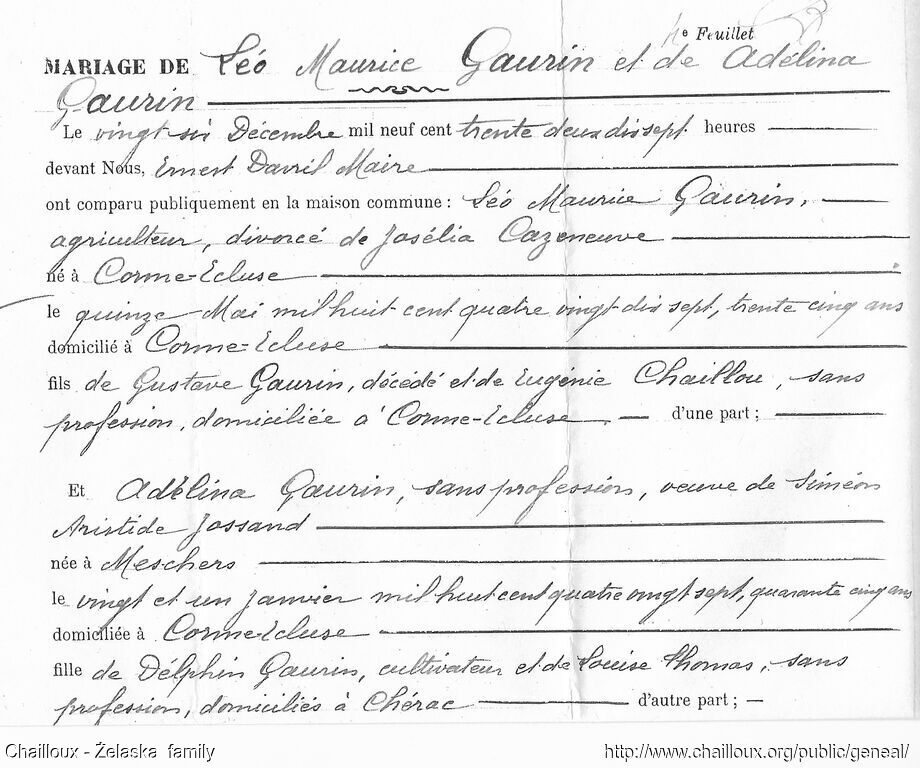 4e Feuillet
MARIAGE DE Léo Maurice Gaurin et de Adélina
Gaurin
Le vingt-six Décembre mil neuf cent trente deux dix sept heures
devant Nous, Ernest Davril Maire
ont comparu publiquement en la maison commune : Léo Maurice Gaurin,
agriculteur, divorcé de Josélia Cazeneuve
né à Corme-Ecluse
le quinze Mai mil huit cent quatre vingt-dix sept, trente cinq ans
domicilié à Corme-Ecluse
fils de Gustave Gaurin, décédé et de Eugénie Chaillou, sans
profession, domiciliée à Corme-Ecluse, — d'une part ;
Et Adélina Gaurin, sans profession, veuve de Siméon
Aristide Jossand
née à Meschers
le vingt et un Janvier mil huit cent quatre vingt sept, quarante cinq ans
domiciliée à Corme-Ecluse
fille de Délphin Gaurin, cultivateur et de Louise Thomas, sans
profession, domiciliés à Chérac d'autre part ; —
Chailloux - Żelaska family
http://www.chailloux.org/public/geneal/